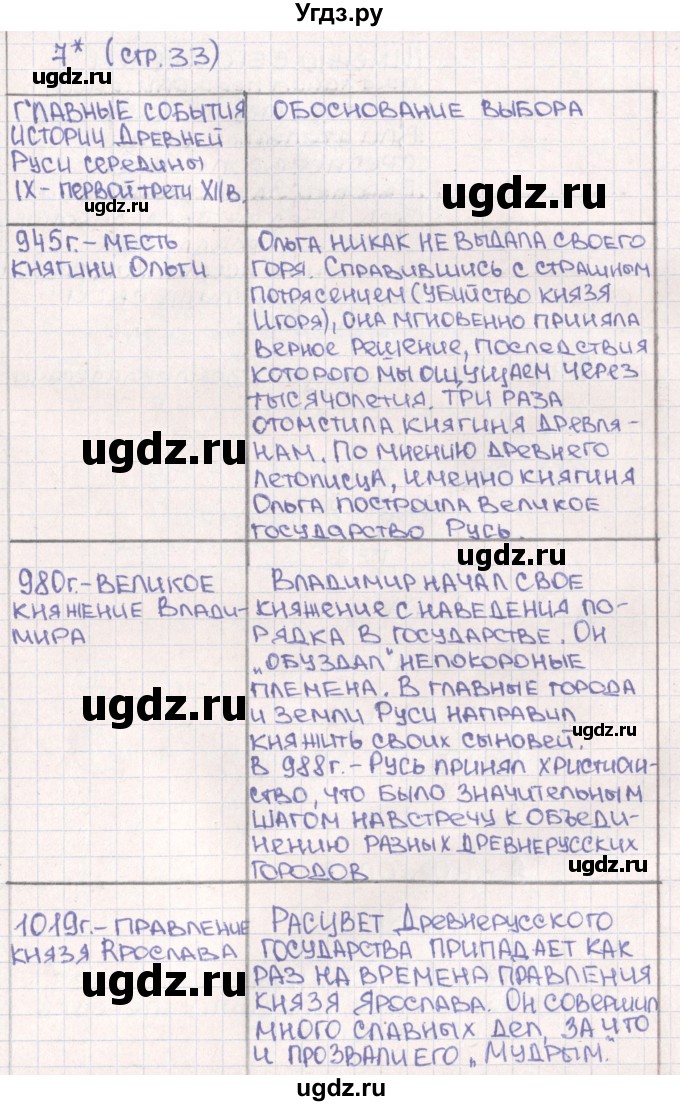 Угдз.ру
7* (стр. 33)
ugdz.ru
ГЛАВНЫЕ СОБЫТИЯ
ИСТОРИИ ДРЕВНЕЙ
РУСИ СЕРЕДИНЫ
IX - ПЕРВОЙ ТРЕТИ XII В.
ugdz.ru
ОБОСНОВАНИЕ ВЫБОРА
ugdz.ru
945г. - МЕСТЬ
КНЯГИНИ ОЛЬГИ
ugdz.ru
ОЛЬГА НИКАК НЕ ВЫДАЛА СВОЕГО
ГОРЯ. СПРАВИВШИСЬ С СТРАШНЫМ
ПОТРЯСЕНИЕМ (УБИЙСТВО КНЯЗЯ
ИГОРЯ), ОНА МГНОВЕННО ПРИНЯЛА
ВЕРНОЕ РЕШЕНИЕ, ПОСЛЕДСТВИЯ
КОТОРОГО МЫ ОЩУЩАЕМ ЧЕРЕЗ
ТЫСЯЧОЛЕТИЯ. ТРИ РАЗА
ОТОМСТИЛА КНЯГИНЯ ДРЕВЛЯ-
НАМ. ПО МНЕНИЮ ДРЕВНЕГО
ЛЕТОПИСЦА, ИМЕННО КНЯГИНЯ
ОЛЬГА ПОСТРОИЛА ВЕЛИКОЕ
ГОСУДАРСТВО РУСЬ.
ugdz.ru
980г. - ВЕЛИКОЕ
КНЯЖЕНИЕ ВЛАДИ-
МИРА
ugdz.ru
ВЛАДИМИР НАЧАЛ СВОЕ
КНЯЖЕНИЕ С НАВЕДЕНИЯ ПО-
РЯДКА В ГОСУДАРСТВЕ. ОН
„ОБУЗДАЛ" НЕПОКОРОНЫЕ
ПЛЕМЕНА. В ГЛАВНЫЕ ГОРОДА
И ЗЕМЛИ РУСИ НАПРАВИЛ
КНЯЖИТЬ СВОИХ СЫНОВЕЙ.
ugdz.ru
В 988г. - РУСЬ ПРИНЯЛ ХРИСТИАН-
СТВО, ЧТО БЫЛО ЗНАЧИТЕЛЬНЫМ
ШАГОМ НАВСТРЕЧУ К ОБЪЕДИ-
НЕНИЮ РАЗНЫХ ДРЕВНЕРУССКИХ
ГОРОДОВ
ugdz.ru
1019г. - ПРАВЛЕНИЕ
КНЯЗЯ ЯРОСЛАВА
ugdz.ru
РАСЦВЕТ ДРЕВНЕРУССКОГО
ГОСУДАРСТВА ПРИПАДАЕТ КАК
РАЗ НА ВРЕМЕНА ПРАВЛЕНИЯ
КНЯЗЯ ЯРОСЛАВА. ОН СОВЕРШИЛ
МНОГО СЛАВНЫХ ДЕЛ, ЗА ЧТО
И ПРОЗВАЛИ ЕГО „МУДРЫМ."
ugdz.ru
ugdz.ru